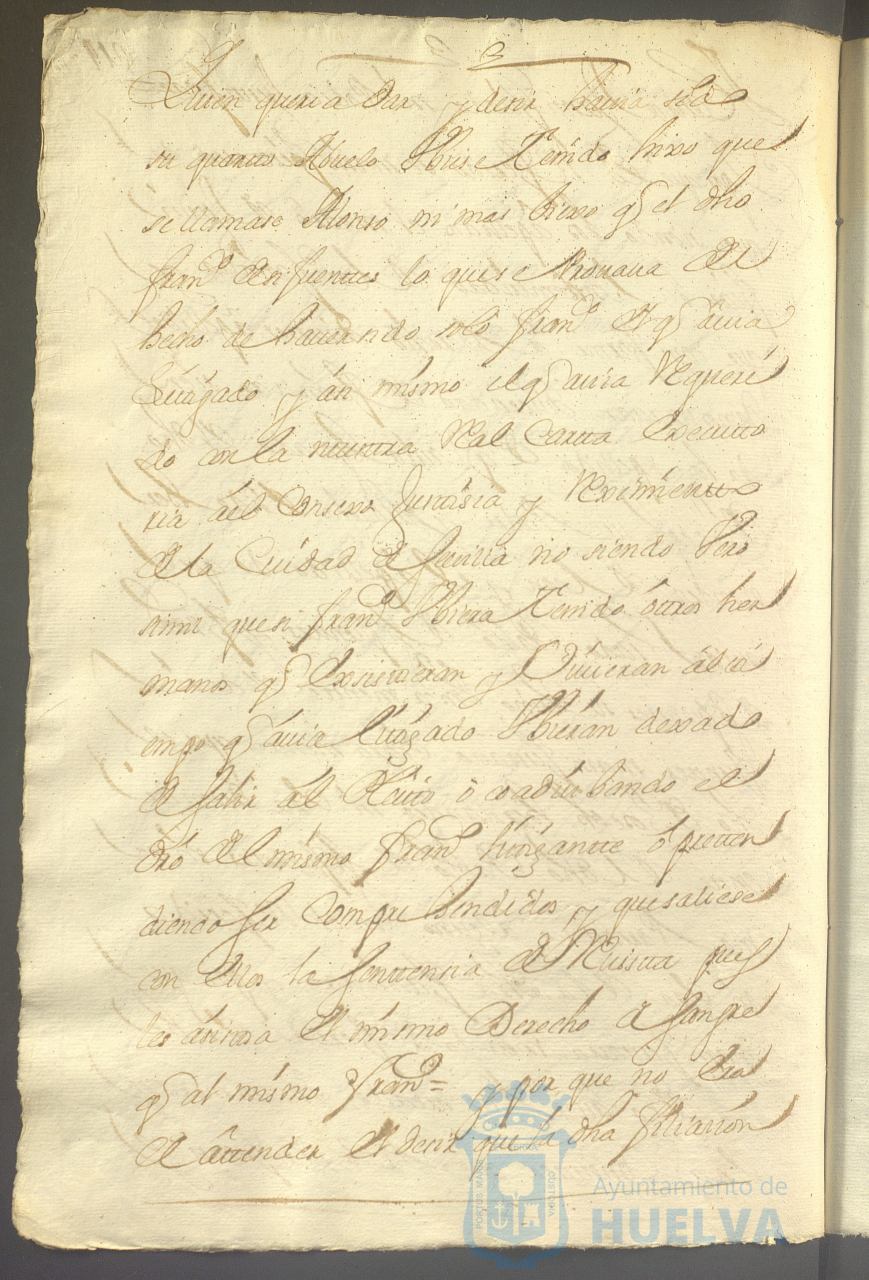 Quien queria dar y desir havia sido
su quarto Abuelo Vbiese Tenido hixo que
se llamase Alonso ni mas hixo q̃ el dho
Franco de sifuentes lo que se Provava del
hecho de haver sido solo Franco el q̃ avia
Litigado y asi mismo el q̃ avia Requeri
do con la nuestra Real Carta Executto
ria al Consexo Justisia y Reximientto
de la Ciudad de Sevilla no siendo Vero
simil que si Franco Vbiera Tenido ottros her
manos q̃ Exsistieran y Vivieran al ti
empo q̃ avia litigado Vbieran dexado
de salir al Pleito o coadiubando el
dro del mismo Franco litigantte o pretten
diendo ser Comprehendidos y que saliese
con ellos la Senttencia de Revistta pues
les asistia el mismo Derecho de Sangre
q̃ al mismo Franco = y por que no Era
de Attender el desir que la dha filiasion
Ayuntamiento de
HUELVA